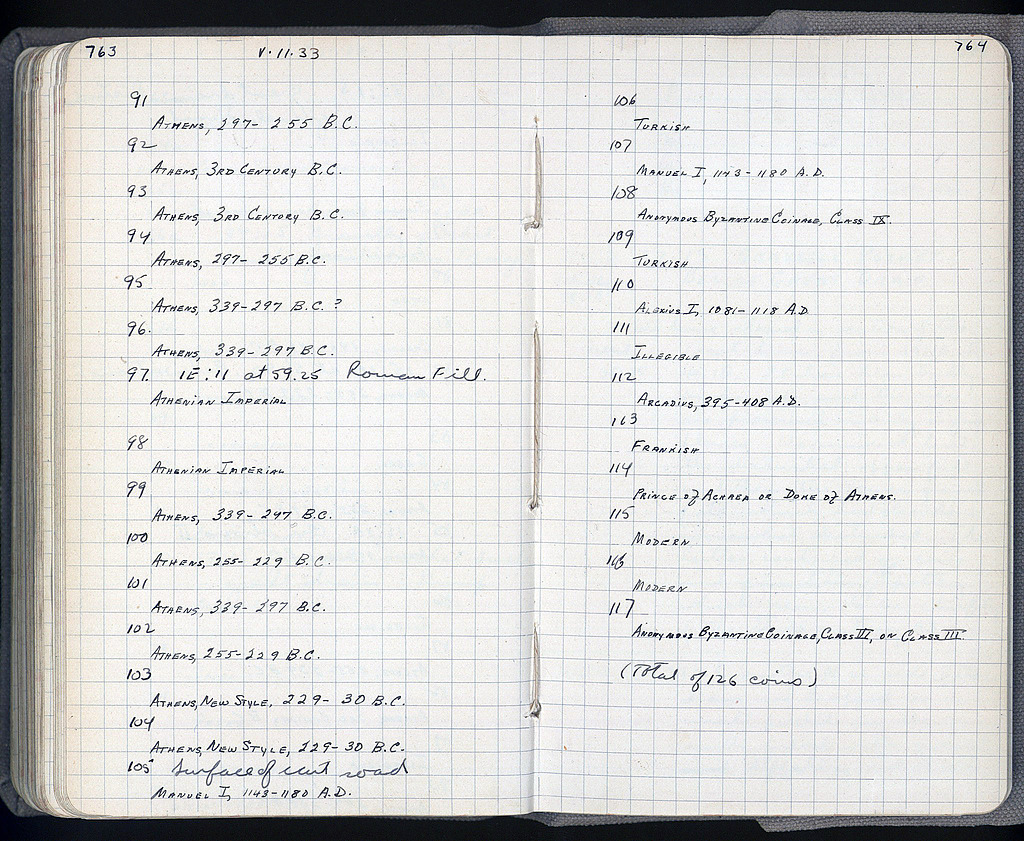 763
V·11·33
91
ATHENS, 297- 255 B.C.
92
ATHENS, 3RD CENTURY B.C.
93
ATHENS, 3RD CENTURY B.C.
94
ATHENS, 297- 255 B.C.
95
ATHENS, 339-297 B.C.?
96.
ATHENS, 339-297 B.C.
97. 1E:11 at 59.25 Roman Fill.
ATHENIAN IMPERIAL
98
ATHENIAN IMPERIAL
99
ATHENS, 339-297 B.C.
100
ATHENS, 255-229 B.C.
101
ATHENS, 339-297 B.C.
102
ATHENS, 255-229 B.C.
103
ATHENS, NEW STYLE, 229- 30 B.C.
104
ATHENS, NEW STYLE, 229-30 B.C.
105 Surface of cart road
MANUEL I, 1143-1180 A.D.
764
106
TURKISH
107
MANUEL I, 1143-1180 A.D.
108
ANONYMOUS BYZANTINE COINAGE, CLASS IX.
109
TURKISH
110
ALEXIUS I, 1081-1118 A.D.
111
ILLEGIBLE
112
ARCADIUS, 395-408 A.D.
113
FRANKISH
114
PRINCE of ACHAEA OR DUKE of ATHENS.
115
MODERN
116
MODERN
117
ANONYMOUS BYZANTINE COINAGE, CLASS III, OR CLASS III
(Total of 126 coins)